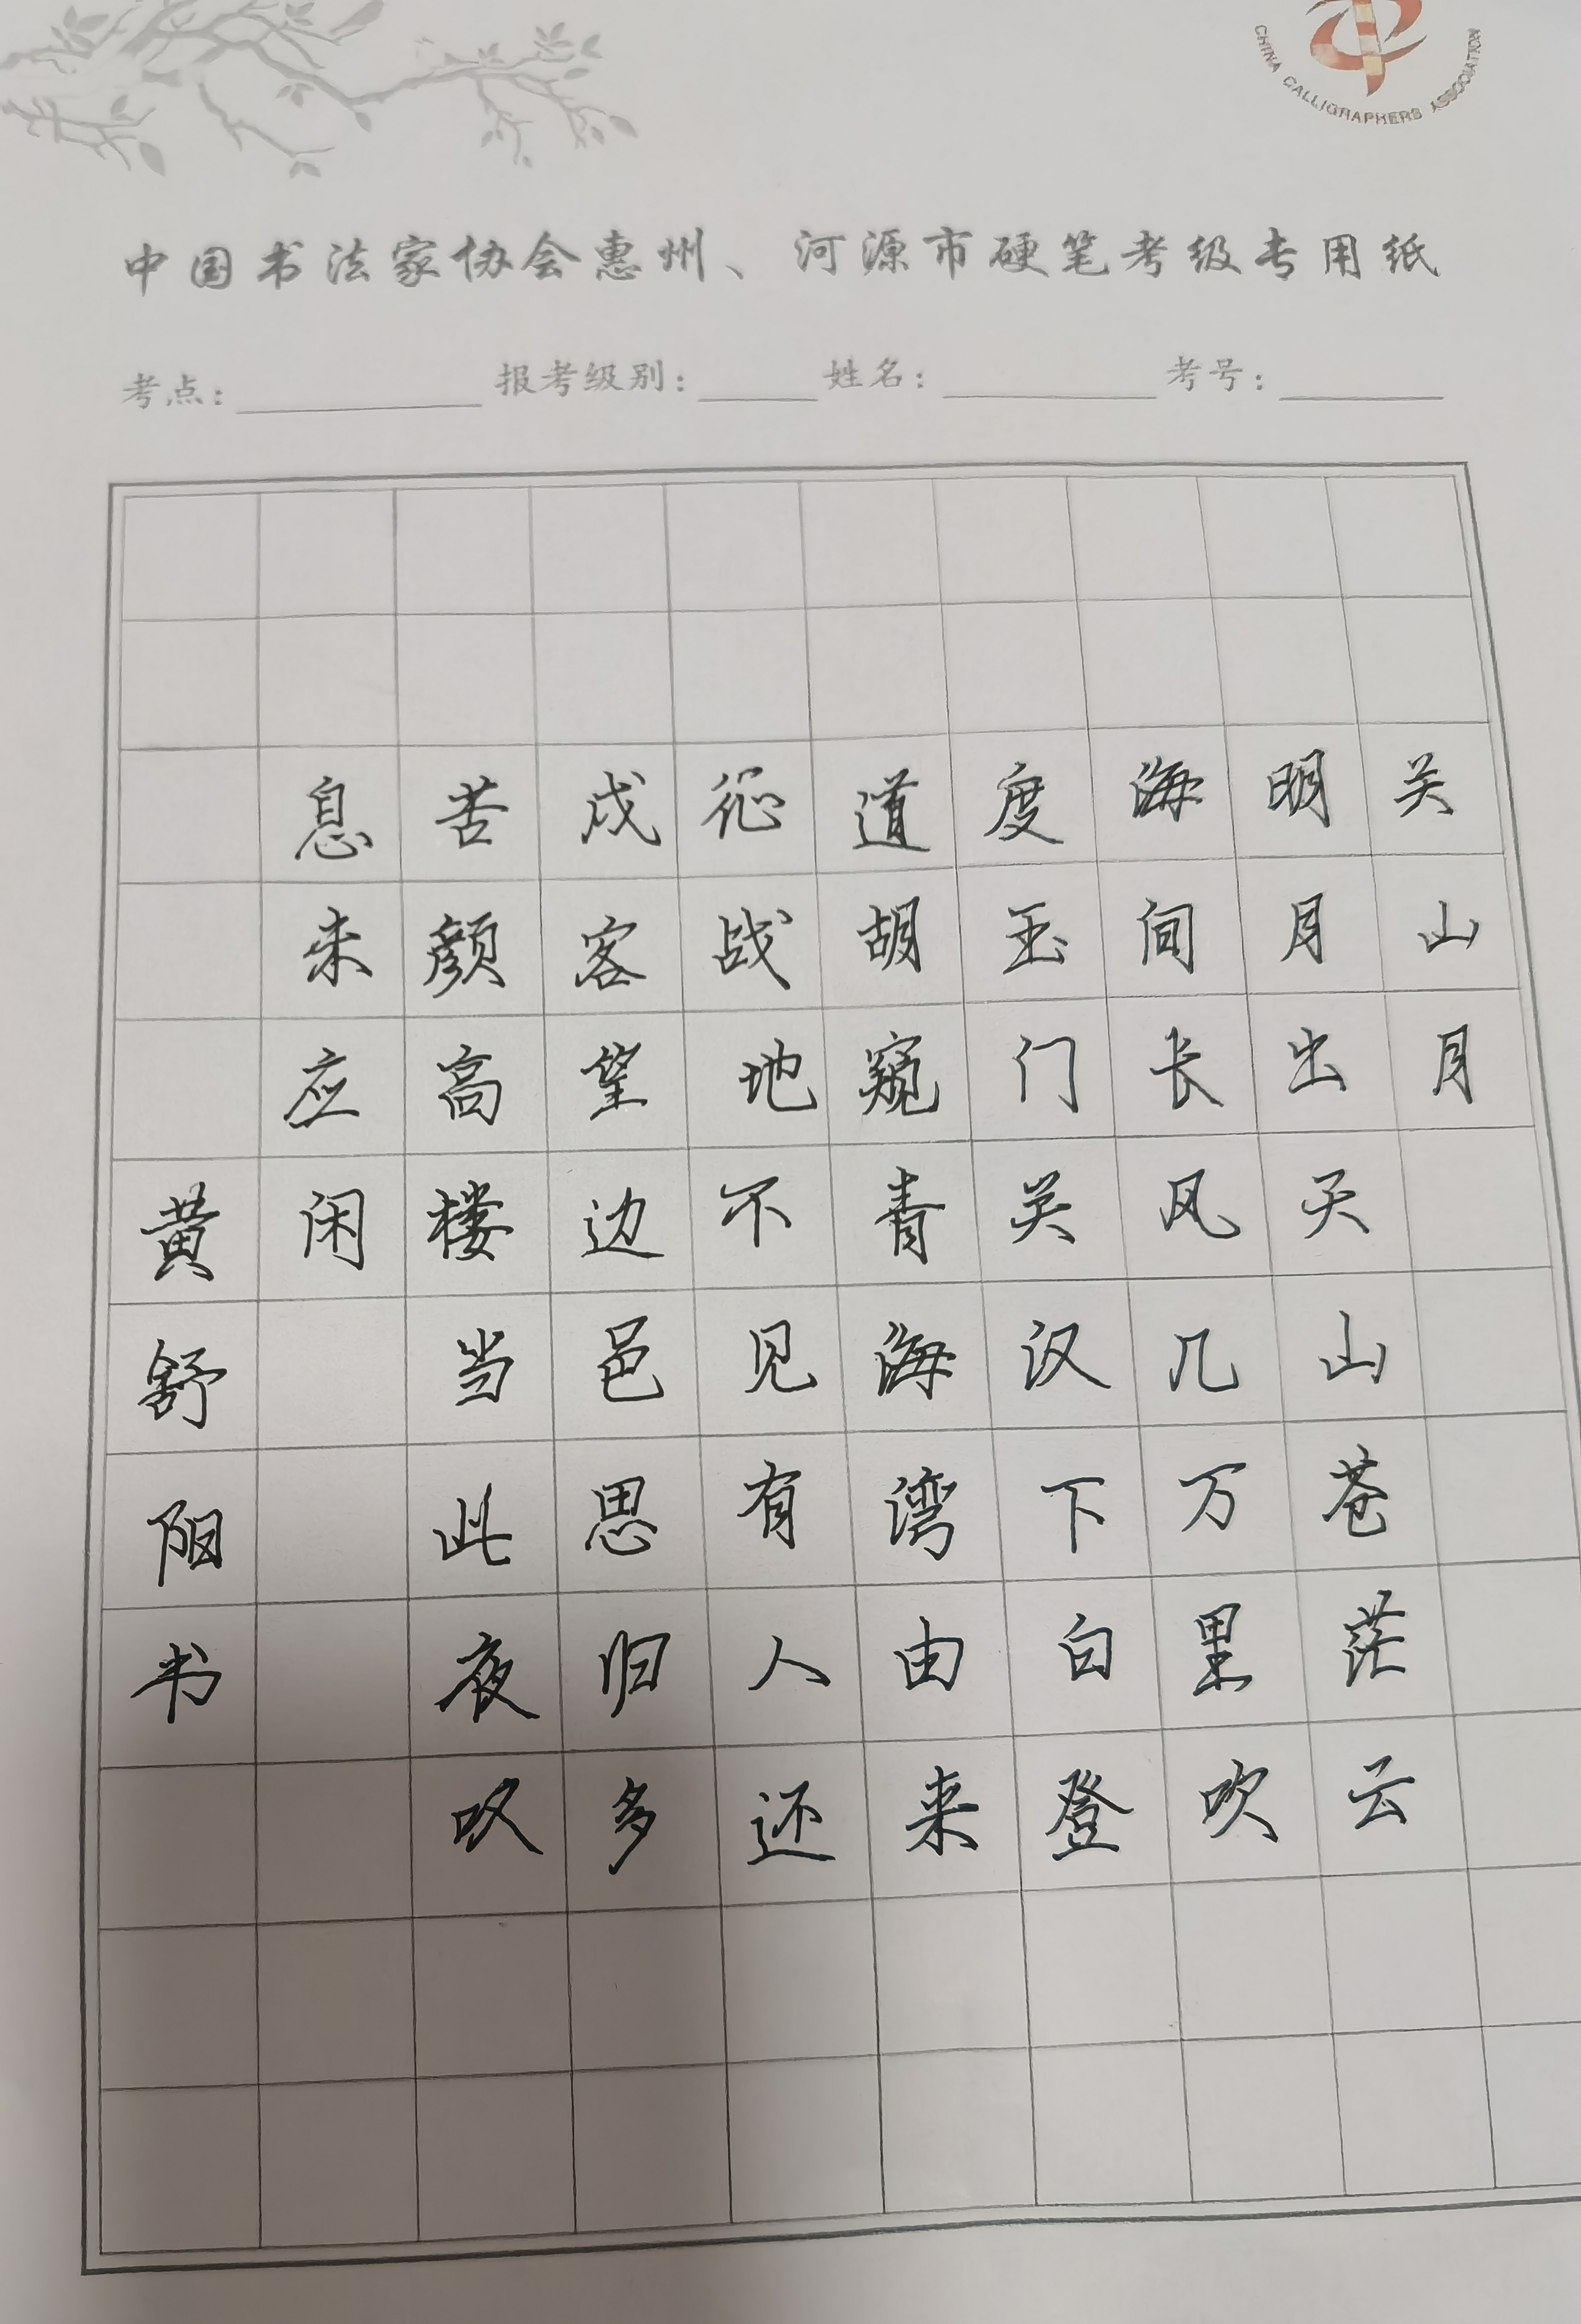 CHINA CALLIGRAPHERS ASSOCIATION
中国书法家协会惠州、河源市硬笔考级专用纸
考点： 报考级别： 姓名： 考号：
关山月
明月出天山苍茫云
海间长风几万里吹
度玉门关汉下白登
道胡窥青海湾由来
征战地不见有人还
戍客望边邑思归多
苦颜高楼当此夜叹
息未应闲
黄舒阳书